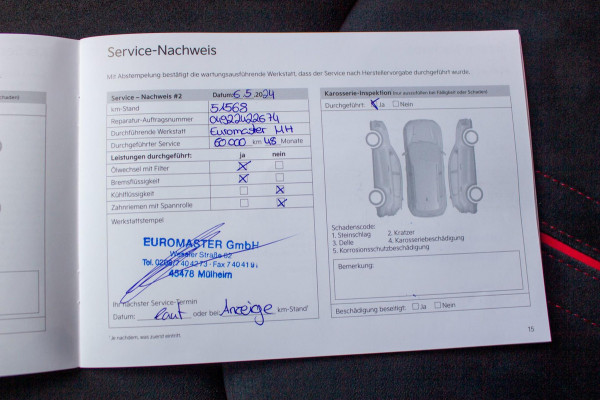 Service-Nachweis
Mit Abstempelung bestätigt die wartungsausführende Werkstatt, dass der Service nach Herstellervorgabe durchgeführt wurde.
Service – Nachweis #2 Datum: 6.5.2024
km-Stand 51568
Reparatur-Auftragsnummer 04922422674
Durchführende Werkstatt Euromaster MH
Durchgeführter Service 60000 km 48 Monate
Leistungen durchgeführt: ja nein
Ölwechsel mit Filter
Bremsflüssigkeit
Kühlflüssigkeit
Zahnriemen mit Spannrolle
Werkstattstempel
EUROMASTER GmbH
Weseler Straße 62
Tel. 0208/7404273 · Fax 740419
45478 Mülheim
Ihr nächster Service-Termin
Datum: laut oder bei Anzeige km-Stand¹
¹ Je nachdem, was zuerst eintritt.
Karosserie-Inspektion (nur auszufüllen bei Fälligkeit oder Schaden)
Durchgeführt: Ja Nein
Schadenscode:
1. Steinschlag 2. Kratzer
3. Delle 4. Karosseriebeschädigung
5. Korrosionsschutzbeschädigung
Bemerkung:
Beschädigung beseitigt: Ja Nein
15